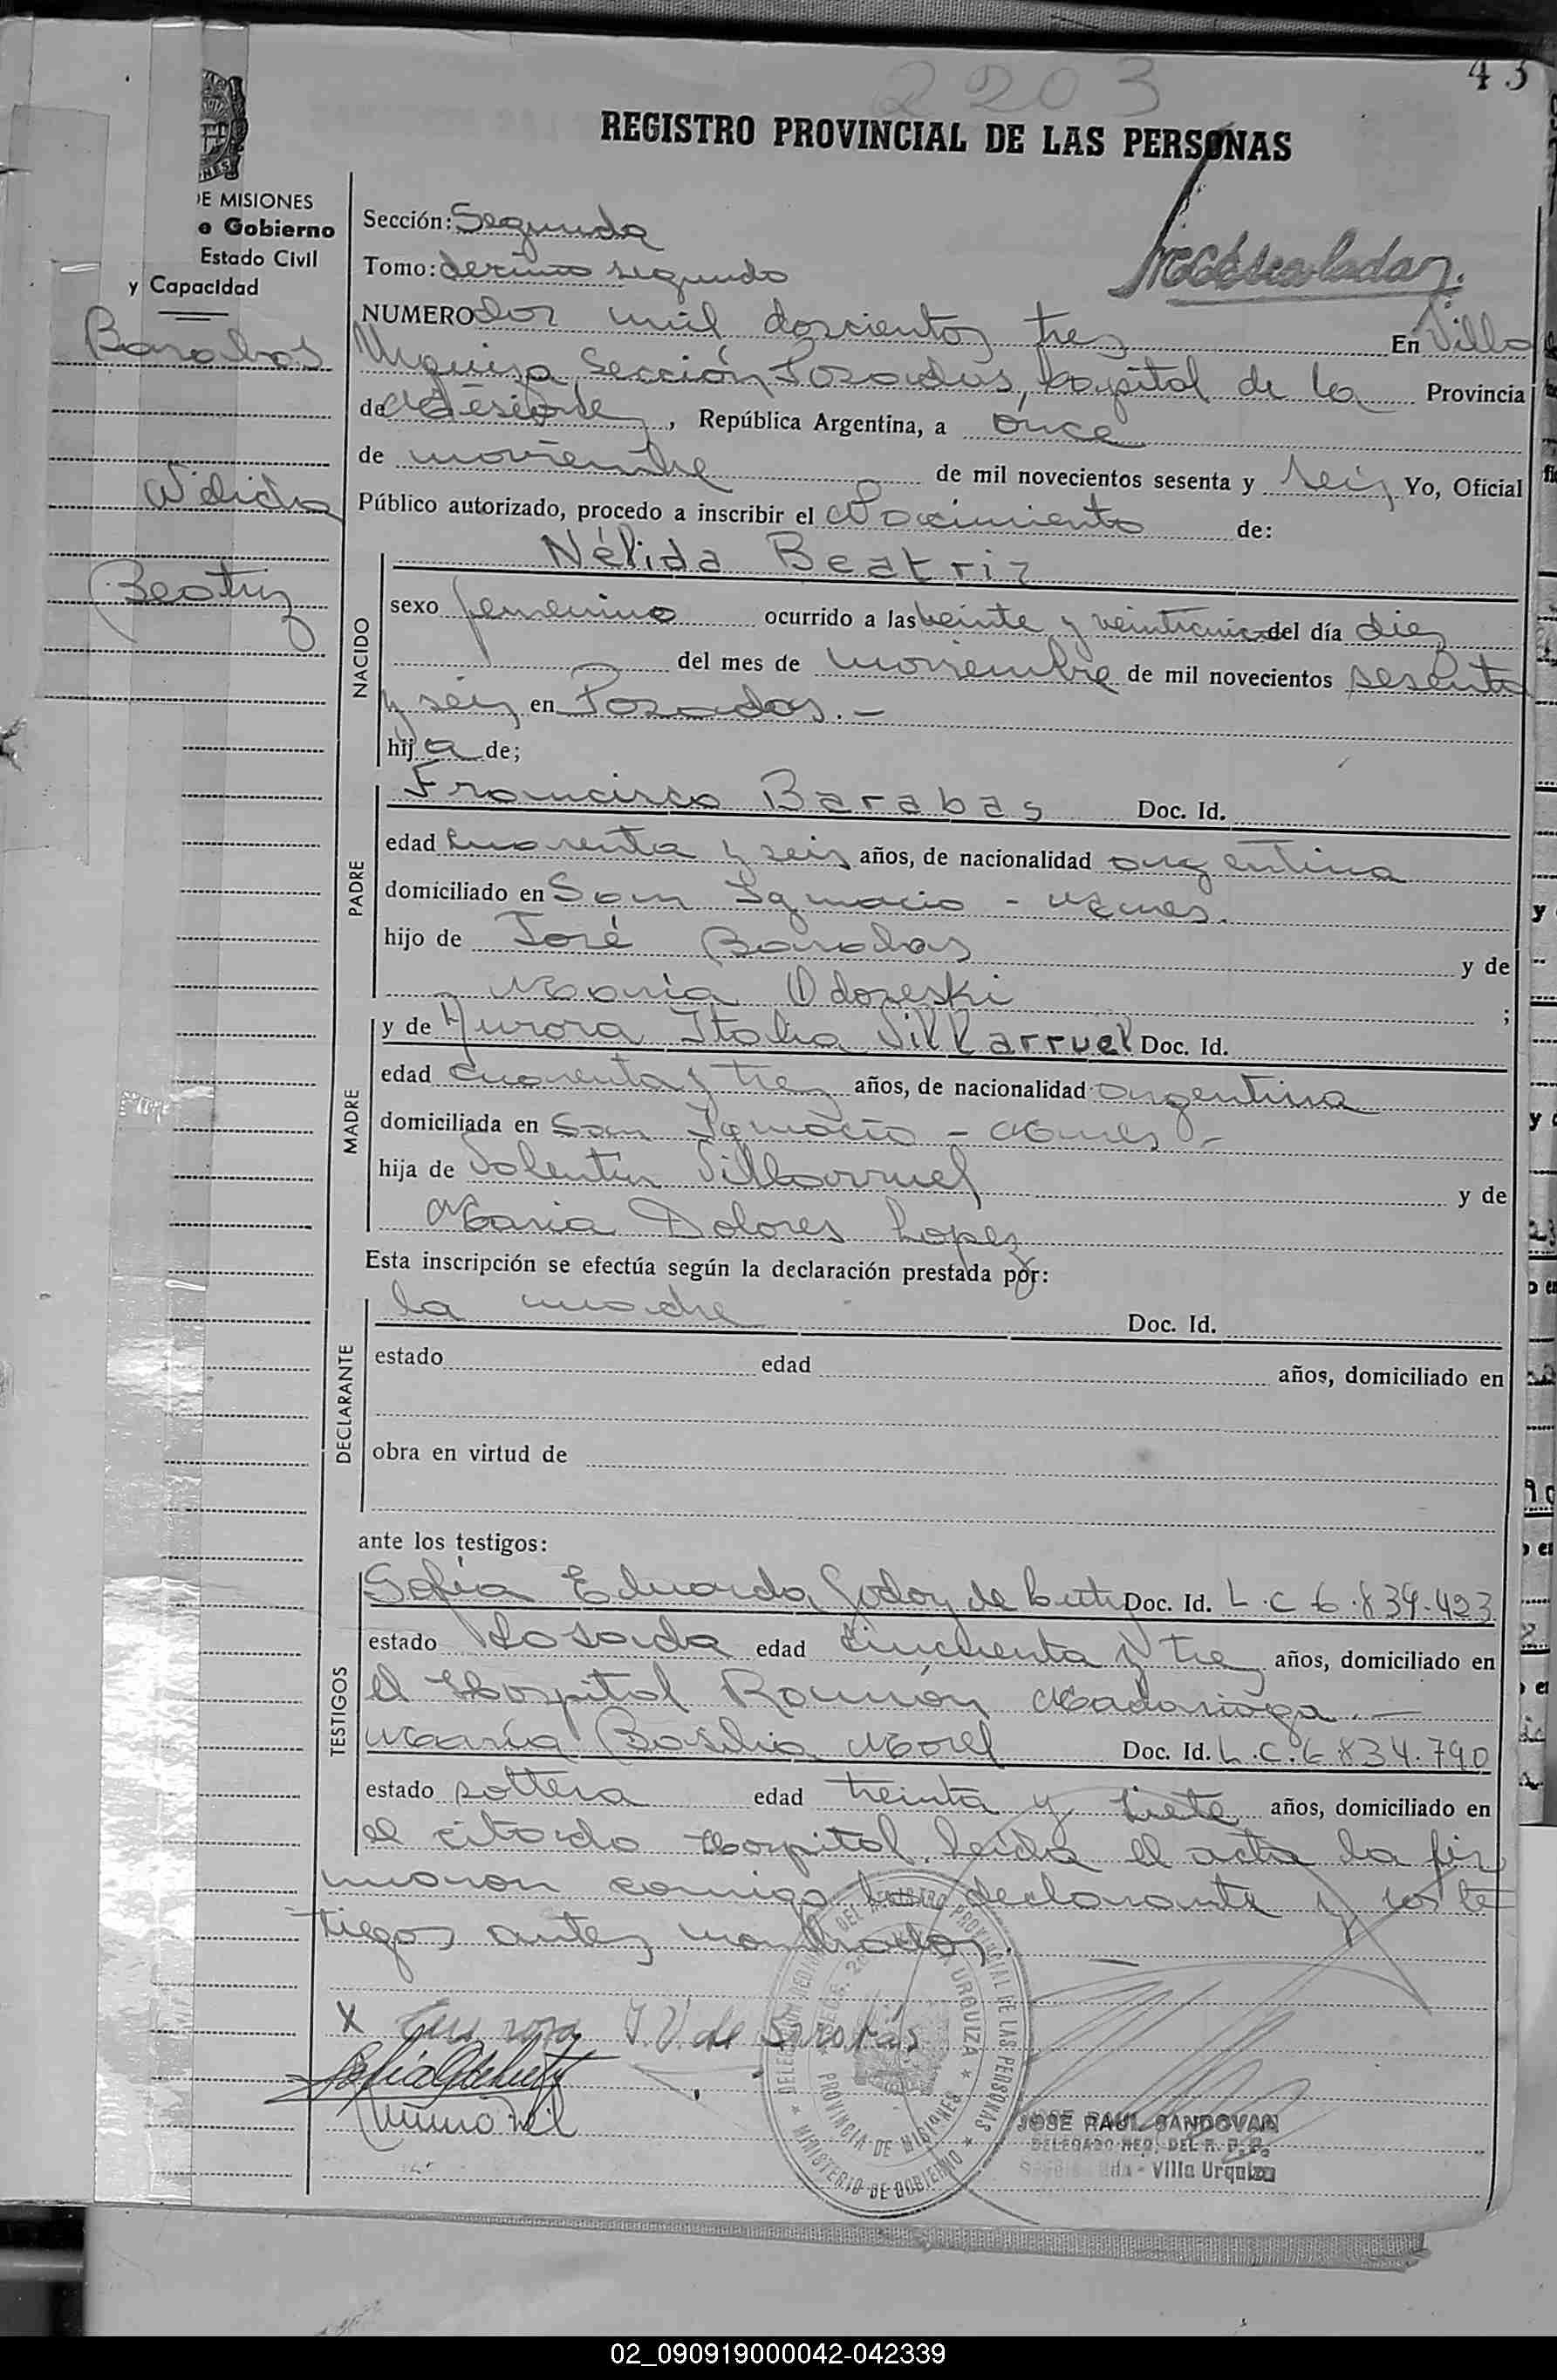 2203
43
REGISTRO PROVINCIAL DE LAS PERSONAS
DE MISIONES
e Gobierno
Estado Civil
y Capacidad
Barabas
Nélida
Beatriz
Sección: Segunda
Tomo: decimo segundo
NUMERO dos mil doscientos tres En Villa
Urquiza, Sección Posadas, capital de la Provincia
de Misiones, República Argentina, a once
de noviembre de mil novecientos sesenta y seis Yo, Oficial
Público autorizado, procedo a inscribir el Nacimiento de:
NACIDO
Nélida Beatriz
sexo femenino ocurrido a las veinte y veinticinco del día diez
del mes de noviembre de mil novecientos sesenta
y seis en Posadas.-
hija de;
PADRE
Francisco Barabas Doc. Id.
edad cuarenta y seis años, de nacionalidad argentina
domiciliado en San Ignacio - Mnes.
hijo de José Barabas y de
María ;
MADRE
y de Aurora Italia Villarruel Doc. Id.
edad cuarenta y tres años, de nacionalidad argentina
domiciliada en San Ignacio - Mnes -
hija de Valentin Villarruel y de
Maria Dolores Lopez
Esta inscripción se efectúa según la declaración prestada por:
DECLARANTE
la madre Doc. Id.
estado edad años, domiciliado en
obra en virtud de
ante los testigos:
TESTIGOS
Sofia Eduarda Godoy de Doc. Id. L.C 6.839.423
estado casada edad cincuenta y tres años, domiciliado en
el Hospital Ramón Madariaga.-
María Basilia Morel Doc. Id. L.C.6.834.790
estado soltera edad treinta y siete años, domiciliado en
el citado Hospital. Leída el acta la fir
maron conmigo la declarante y los te
tigos antes nombrados. -
X Aurora I.V. de Barabás
DELEGACION DEL REGISTRO PROVINCIAL DE LAS PERSONAS
URQUIZA
PROVINCIA DE MISIONES
MINISTERIO DE GOBIERNO
JOSE RAUL SANDOVAL
DELEGADO REG. DEL R. P. P.
Villa Urquiza
02_090919000042-042339